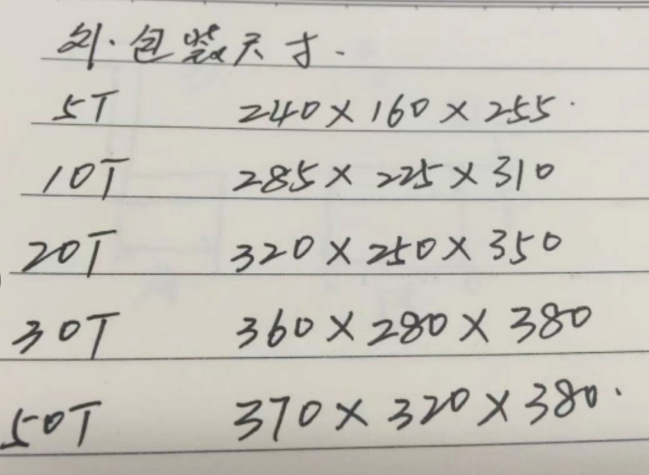 外.包装尺寸.
5T 240×160×255.
10T 285×225×310
20T 320×250×350
30T 360×280×380
50T 370×320×380.